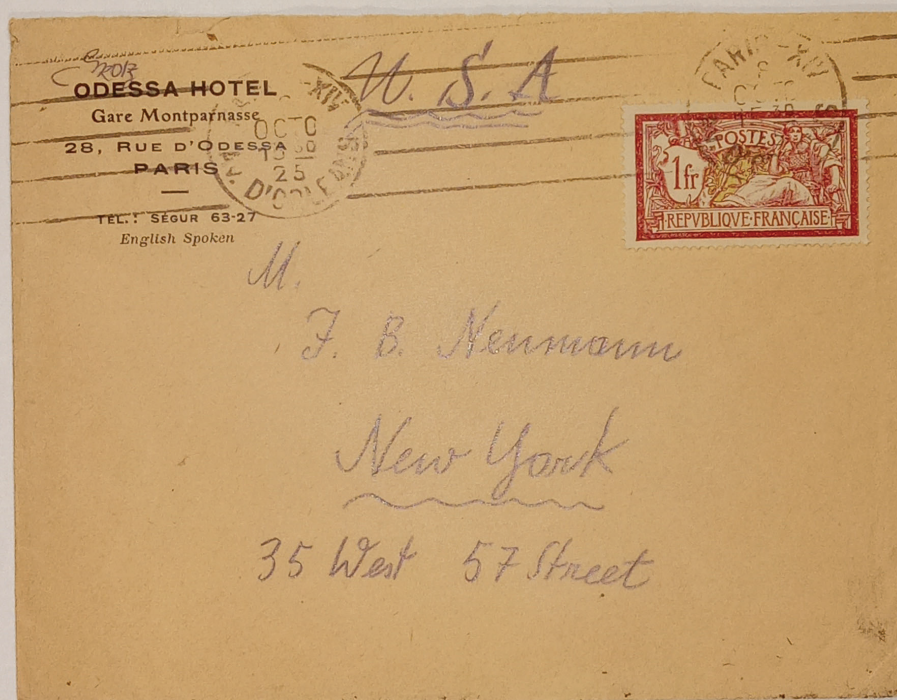 ODESSA HOTEL
Gare Montparnasse
28, RUE D'ODESSA
PARIS
TÉL.: SÉGUR 63-27
English Spoken
U.S.A
PARIS-XIV
POSTES
1fr
REPVBLIQVE·FRANÇAISE
XIV
25
M.
J. B. Neumann
New York
35 West 57 Street